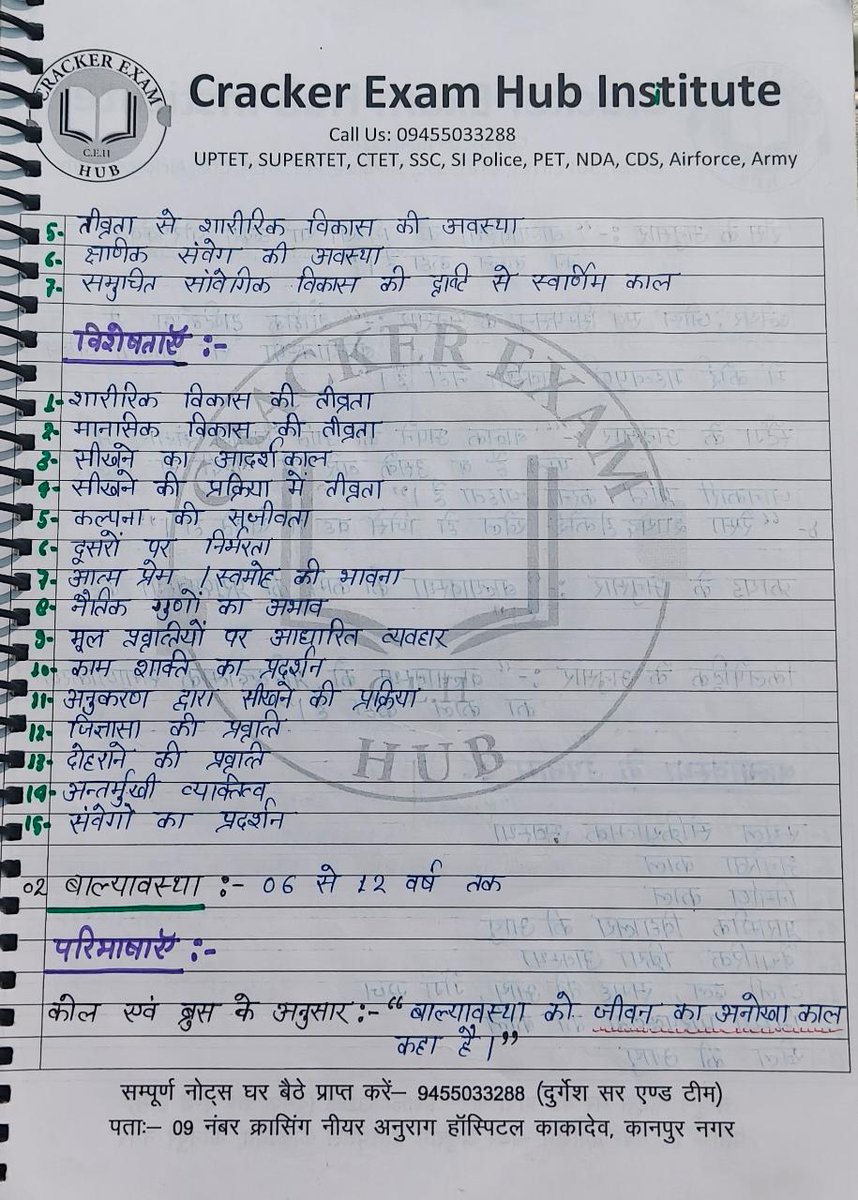 CRACKER EXAM
C.E.H
HUB
Cracker Exam Hub Institute
Call Us: 09455033288
UPTET, SUPERTET, CTET, SSC, SI Police, PET, NDA, CDS, Airforce, Army
5- तीव्रता से शारीरिक विकास की अवस्था
6- क्षणिक संवेग की अवस्था
7- समुचित सांवेगिक विकास की दृष्टि से स्वर्णिम काल
विशेषताएँ :-
1- शारीरिक विकास की तीव्रता
2- मानसिक विकास की तीव्रता
3- सीखने का आदर्श काल
4- सीखने की प्रक्रिया में तीव्रता
5- कल्पना की सजीवता
6- दूसरों पर निर्भरता
7- आत्म प्रेम / स्वमोह की भावना
8- नैतिक गुणों का अभाव
9- मूल प्रवृत्तियों पर आधारित व्यवहार
10- काम शक्ति का प्रदर्शन
11- अनुकरण द्वारा सीखने की प्रक्रिया
12- जिज्ञासा की प्रवृत्ति
13- दोहराने की प्रवृत्ति
14- अन्तर्मुखी व्यक्तित्व
15- संवेगो का प्रदर्शन
CRACKER EXAM
HUB
02 बाल्यावस्था :- 06 से 12 वर्ष तक
परिभाषाएँ :-
कोल एवं ब्रुस के अनुसार :- “बाल्यावस्था को जीवन का अनोखा काल
कहा है।”
सम्पूर्ण नोट्स घर बैठे प्राप्त करें– 9455033288 (दुर्गेश सर एण्ड टीम)
पताः– 09 नंबर क्रासिंग नीयर अनुराग हॉस्पिटल काकादेव, कानपुर नगर